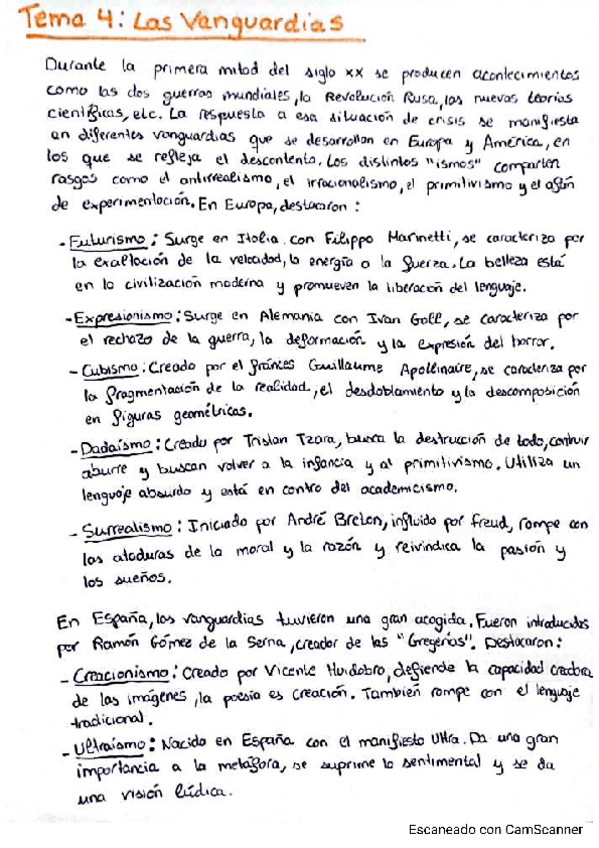 Tema 4: Las Vanguardias
Durante la primera mitad del siglo XX se producen acontecimientos
como las dos guerras mundiales, la Revolución Rusa, las nuevas teorías
científicas, etc. La respuesta a esa situación de crisis se manifiesta
en diferentes vanguardias que se desarrollan en Europa y América, en
los que se refleja el descontento. Los distintos "ismos" comparten
rasgos como el antirrealismo, el irracionalismo, el primitivismo y el afán
de experimentación. En Europa, destacaron:
- Futurismo: Surge en Italia con Filippo Marinetti, se caracteriza por
la exaltación de la velocidad, la energía o la fuerza. La belleza está
en la civilización moderna y promueven la liberación del lenguaje.
- Expresionismo: Surge en Alemania con Ivan Goll, se caracteriza por
el rechazo de la guerra, la deformación y la expresión del horror.
- Cubismo: Creado por el francés Guillaume Apollinaire, se caracteriza por
la fragmentación de la realidad, el desdoblamiento y la descomposición
en figuras geométricas.
- Dadaísmo: Creado por Tristan Tzara, busca la destrucción de todo, construir
aburre y buscan volver a la infancia y al primitivismo. Utiliza un
lenguaje absurdo y está en contra del academicismo.
- Surrealismo: Iniciado por André Breton, influido por Freud, rompe con
las ataduras de la moral y la razón y reivindica la pasión y
los sueños.
En España, las vanguardias tuvieron una gran acogida. Fueron introducidas
por Ramón Gómez de la Serna, creador de las "Gregerías". Destacaron:
- Creacionismo: Creado por Vicente Huidobro, defiende la capacidad creadora
de las imágenes, la poesía es creación. También rompe con el lenguaje
tradicional.
- Ultraísmo: Nacido en España con el manifiesto Ultra. Da una gran
importancia a la metáfora, se suprime lo sentimental y se da
una visión lúdica.
Escaneado con CamScanner